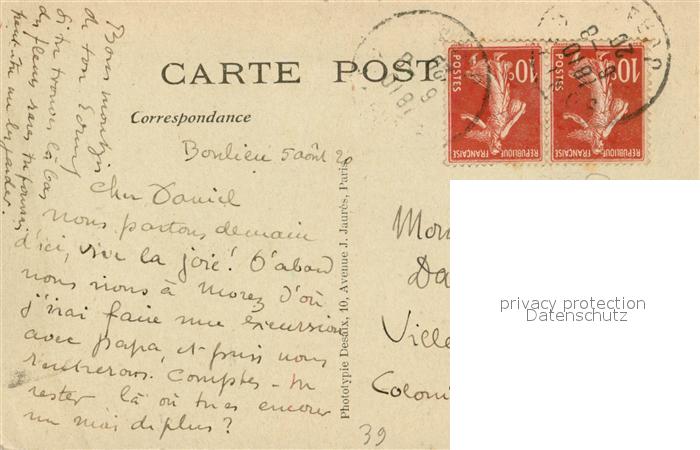 CARTE POST
Correspondance
Bonlieu 5 août 20
Cher Daniel
nous partons demain
d'ici, vive la joie! D'abord
nous irons à Morez d'où
j'irai faire une excursion
avec papa, et puis nous
rentrerons. Comptes-tu
rester là où tu es encore
un mois de plus?
Bons
de ton
si tu trouves là bas
des fleurs sans
peut-être les garder.
Phototypie Desaix, 10, Avenue J. Jaurès, Paris
10c
POSTES
REPUBLIQUE FRANÇAISE
10c
POSTES
REPUBLIQUE FRANÇAISE
Mon
Da
Ville
Colom
39
privacy protection
Datenschutz